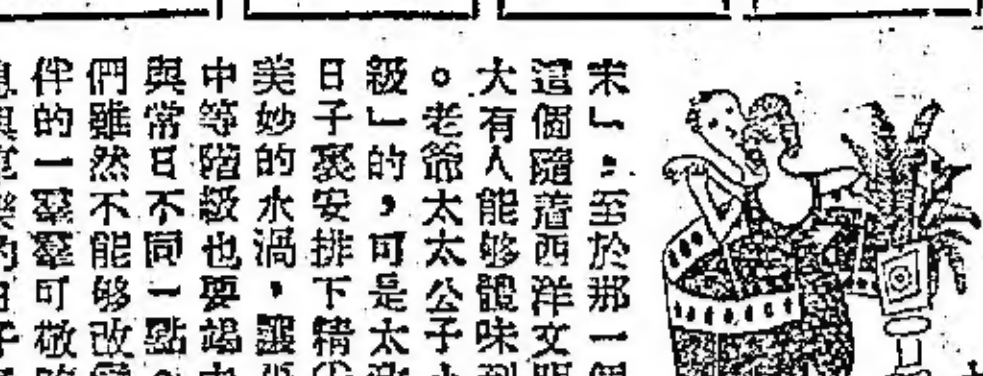 末」，至於那一個
這個隨着西洋文明
大有人能够體味到
。老爺太太公子小
級」的，可是太
日子裏安排下精
美妙的水渦，讓
中等階級也要竭
與常日不同一點。
們雖然不能够改變
伴的一羣羣可敬